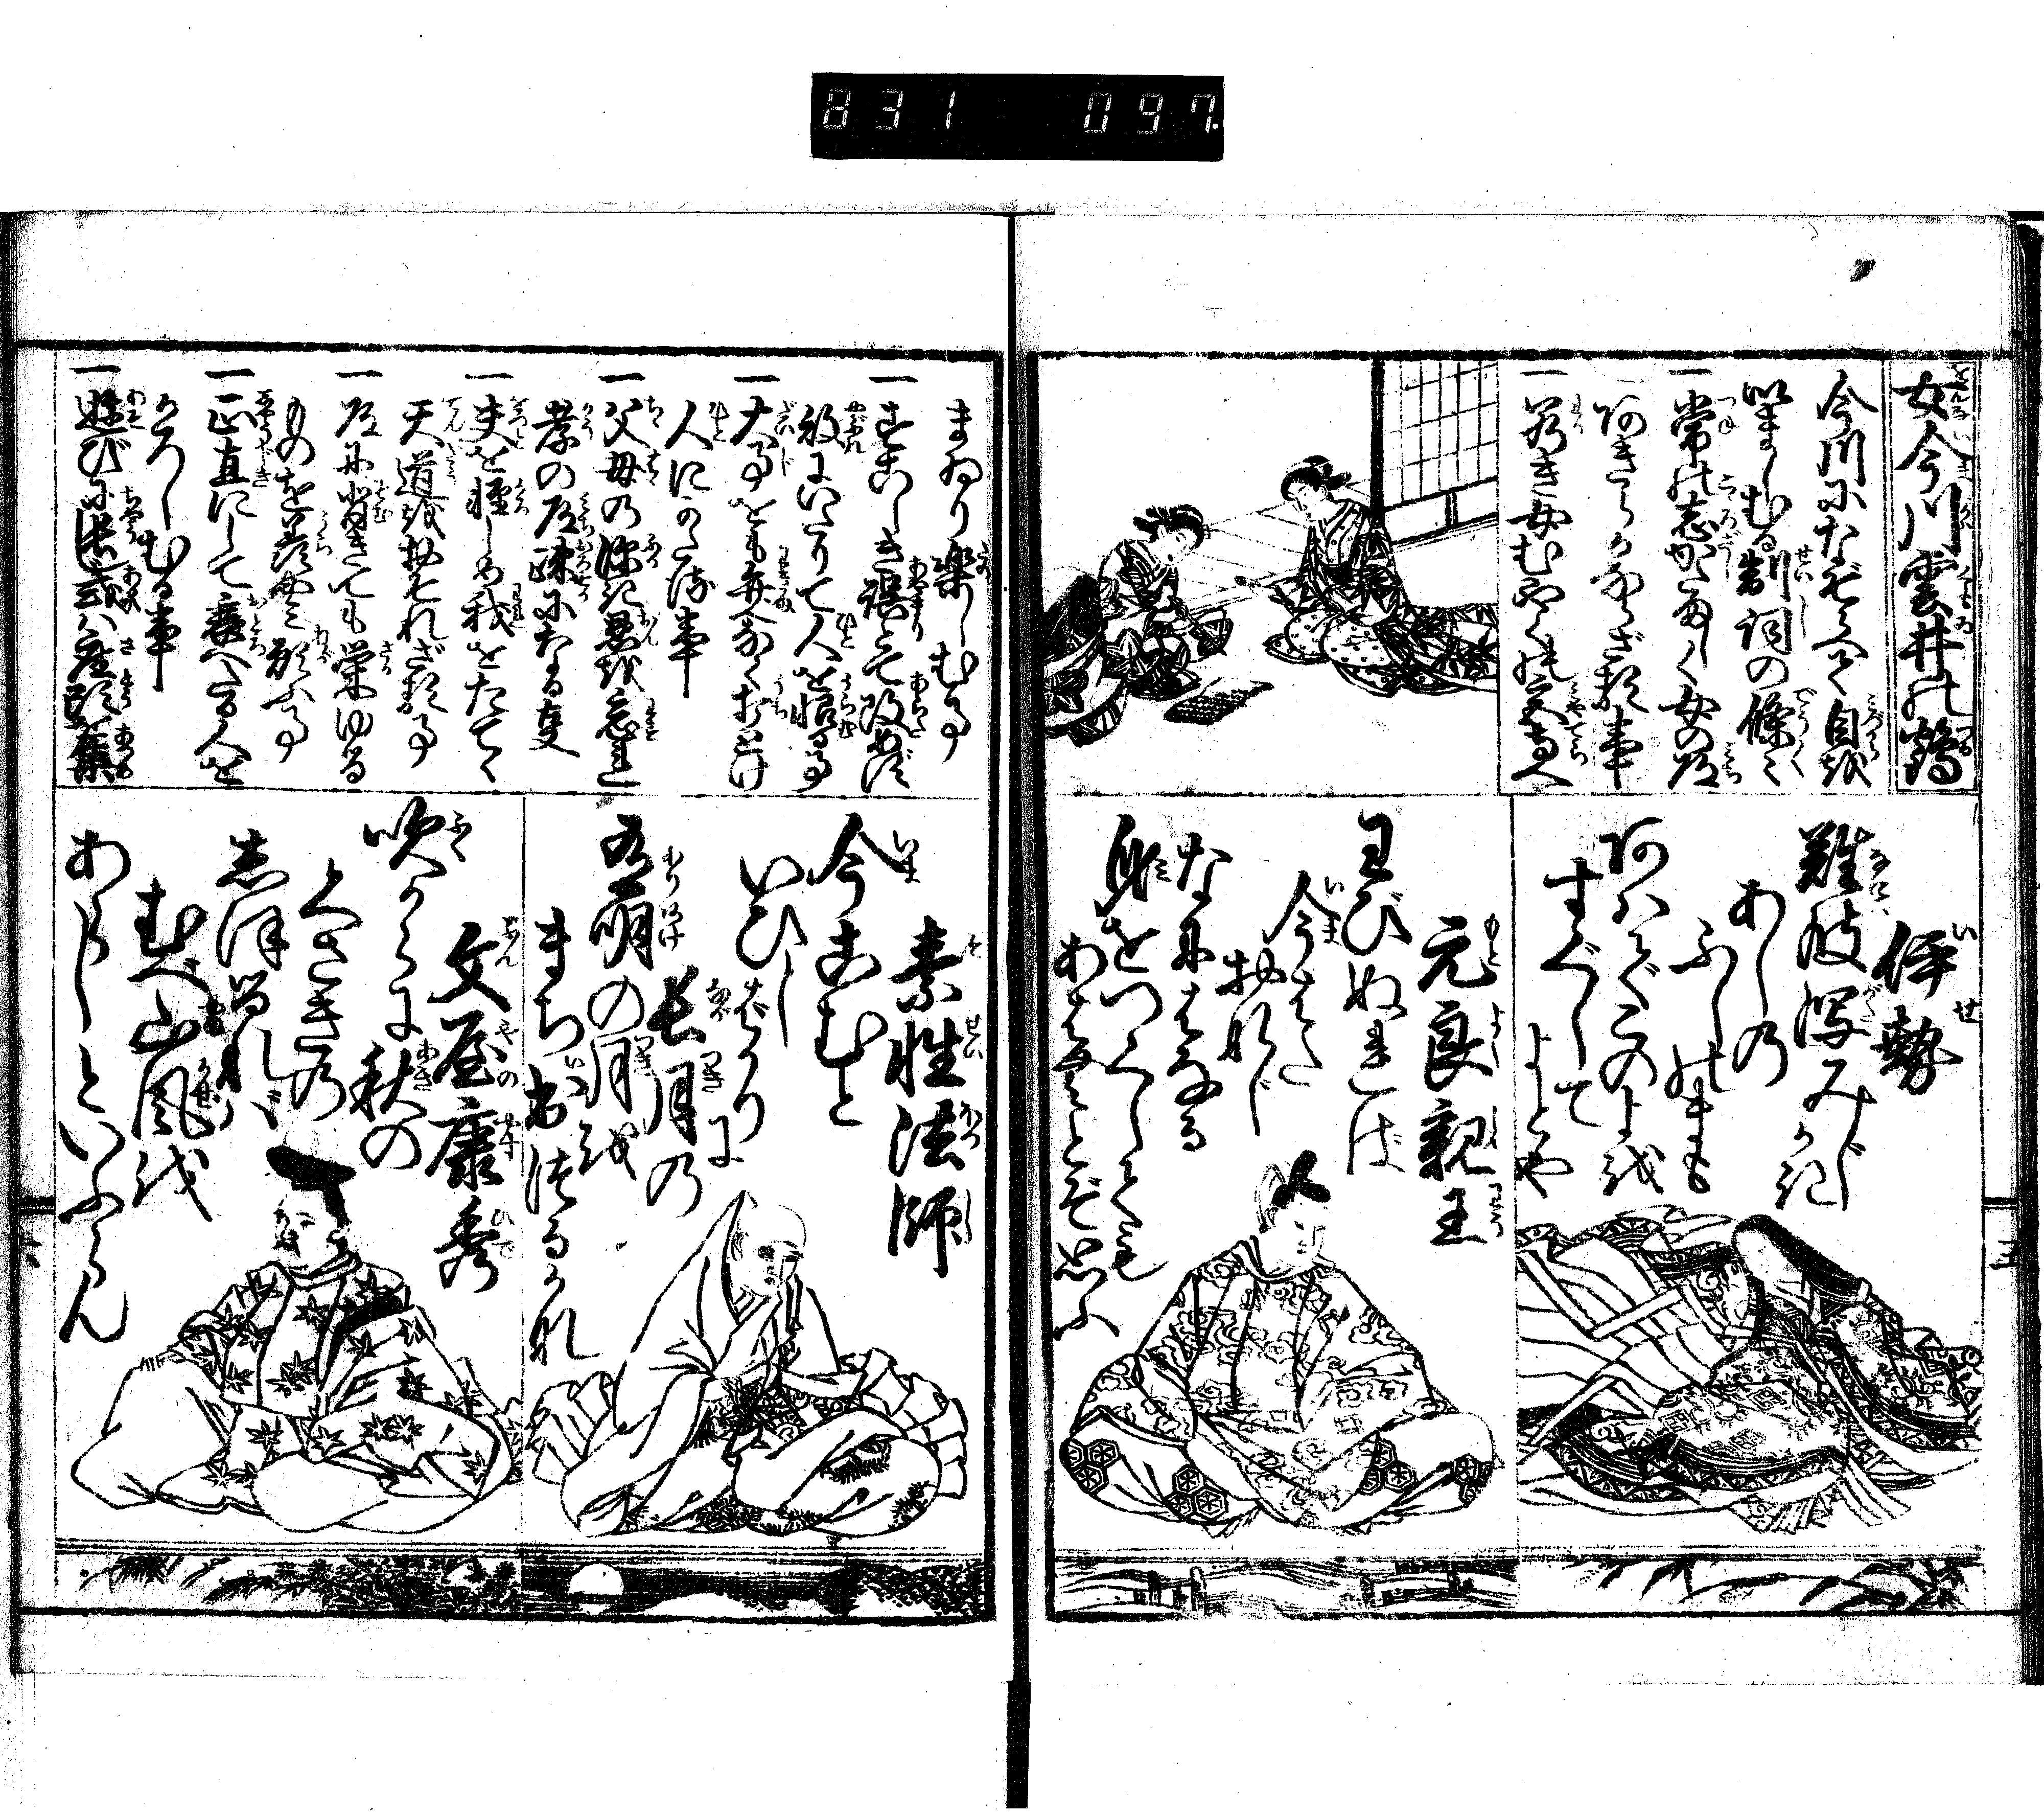 831 097
女今川雲井の鶴
今川になぞらへて自を
いましむる制詞の條々
一常の志かたましく女の道
阿きらかならざる事
一若き女むやくの宮寺へ
まゐり楽しむ事
一すこしき誤とて改めず
敗にいたりて人を恨る事
一大事をも弁なく打とけ
人にかたる事
一父母の深き恩を忘れ
孝の道疎になる事
一夫を軽しめ我をたてゝ
天道を恐れざる事
一道に背きても栄ゆる
ものを羨み願ふ事
一正直にして衰へたる人を
かろしむる事
一遊びに長或ハ座頭を集
伊勢
難波潟みじかき
あしの
ふしのまも
阿ハでこのよを
すぐしてよとや
元良親王
王びぬれば
今はた
おなじ
なにはなる
身をつくしても
あはむとぞ思ふ
素性法師
今こむと
いひし
ばかりに
長月の
有明の月を
まち出つるかな
文屋康秀
吹からに秋の
くさきの
志ほるれば
むべ山風を
あらしといふらん
五
六